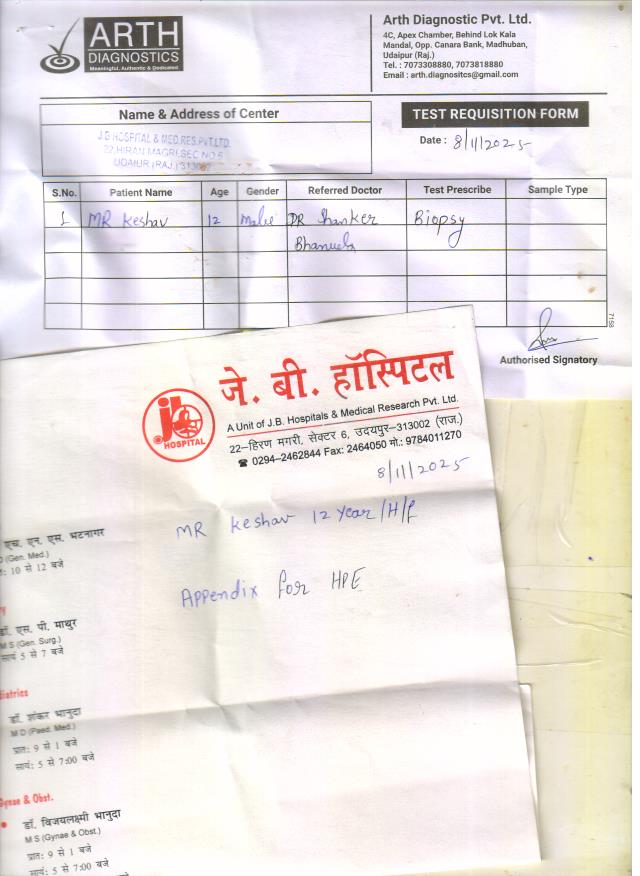 ARTH
DIAGNOSTICS
Meaningful, Authentic & Dedicated
Arth Diagnostic Pvt. Ltd.
4C, Apex Chamber, Behind Lok Kala
Mandal, Opp. Canara Bank, Madhuban,
Udaipur (Raj.)
Tel. : 7073308880, 7073818880
Email : arth.diagnositcs@gmail.com
Name & Address of Center
J.B HOSPITAL & MED.RES.PVT.LTD.
22,HIRAN MAGRI,SEC NO.6
UDAIUR (RAJ.)
TEST REQUISITION FORM
Date : 8/11/2025
S.No. Patient Name Age Gender Referred Doctor Test Prescribe Sample Type
1 MR Keshav 12 Male DR Shanker Biopsy
7158
Authorised Signatory
जे. बी. हॉस्पिटल
HOSPITAL
A Unit of J.B. Hospitals & Medical Research Pvt. Ltd.
22–हिरण मगरी, सेक्टर 6, उदयपुर–313002 (राज.)
☎ 0294-2462844 Fax: 2464050 मो.: 9784011270
8/11/2025
MR Keshav 12 Year
Appendix for HPE
एच. एन. एस. भटनागर
(Gen. Med.)
10 से 12 बजे
डॉ. एस. पी. माथुर
M S (Gen. Surg.)
सायं 5 से 7 बजे
डॉ. शंकर भानुदा
M D (Paed. Med.)
प्रात: 9 से 1 बजे
सायं: 5 से 7:00 बजे
Gynae & Obst.
डॉ. विजयलक्ष्मी भानुदा
M S (Gynae & Obst.)
प्रात: 9 से 1 बजे
सायं: 5 से 7:00 बजे